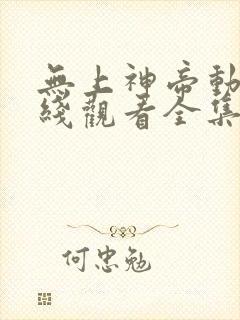 無上神帝動
綫觀看全集
何忠勉